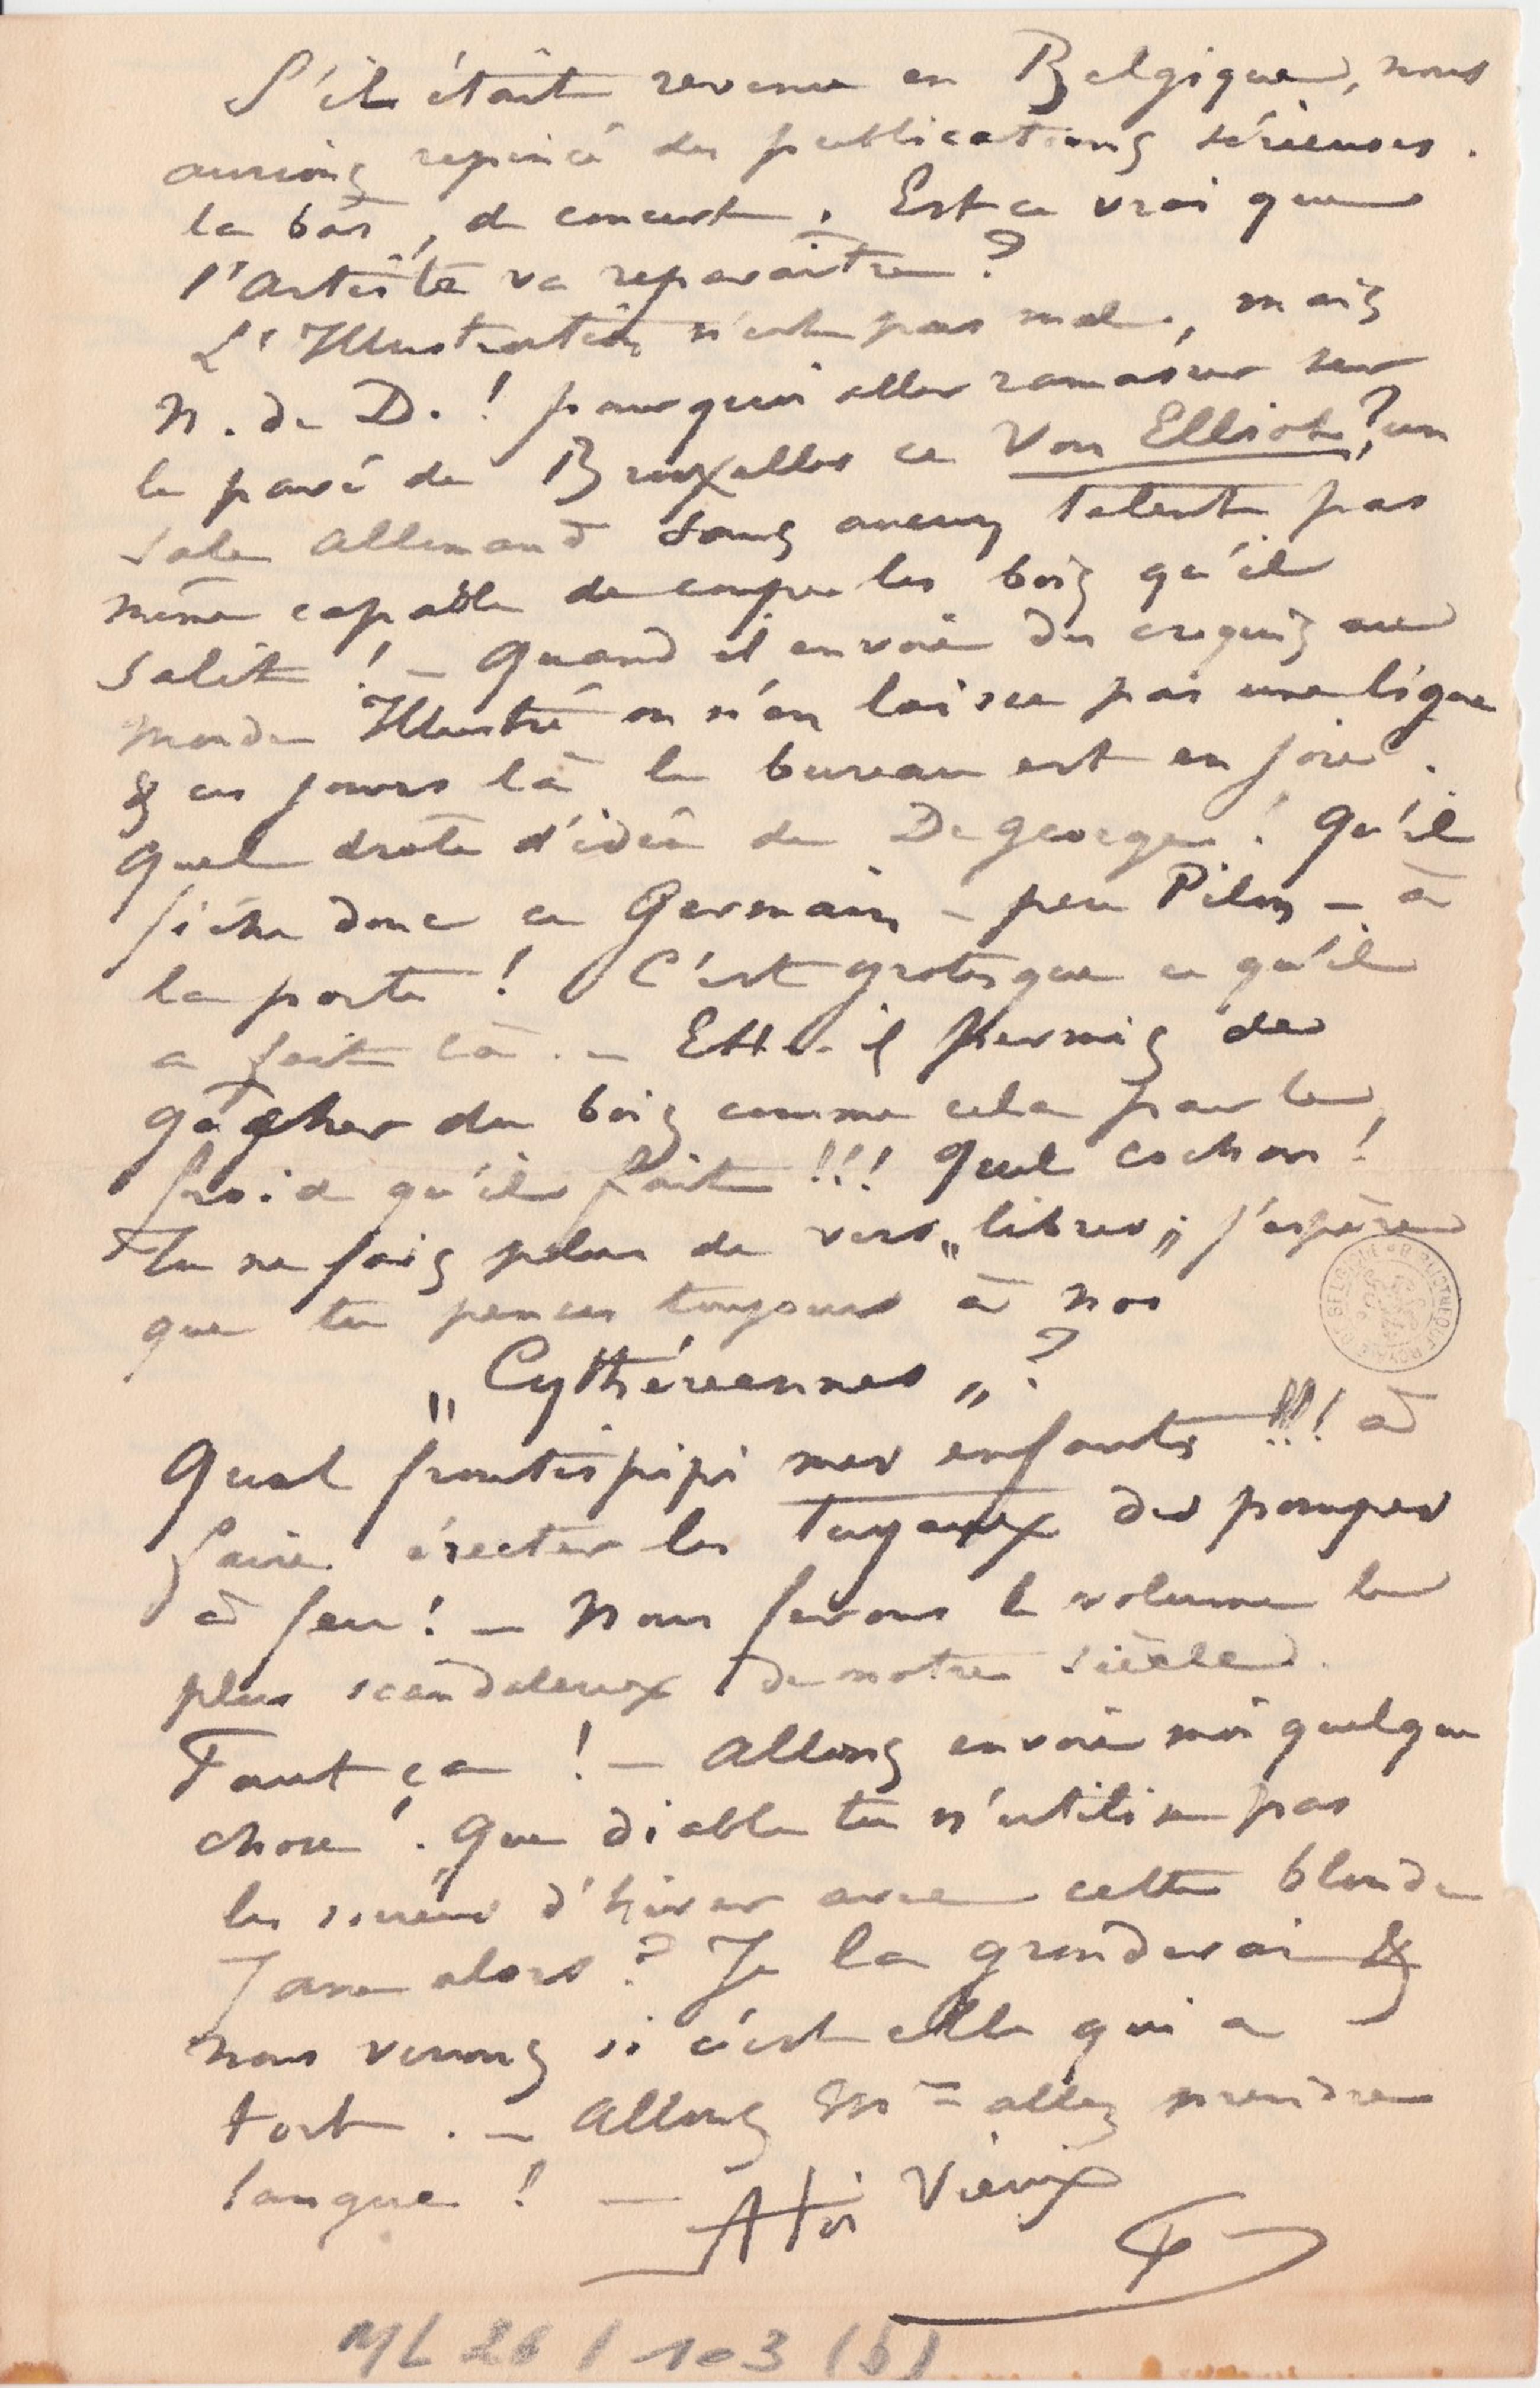 S'il était revenu en Belgique, nous
aurions repincé des publications sérieuses
là bas, de concert. Est-ce vrai que
l'Artiste va reparaître ?
L'Illustration n'est pas mal, mais
N. de D. ! pourquoi aller ramasser sur
le pavé de Bruxelles ce Von Elliot ? un
sale allemand sans aucun talent pas
même capable de couper les bois qu'il
salit ! — Quand il envoie des croquis au
monde Illustré on n'en laisse pas une ligne
& ces jours là le bureau est en joie.
Quel drôle d'idée de Degeorge ! Qu'il
fiche donc ce Germain – peu Pilon – à
la porte ! C'est grotesque ce qu'il
a fait là. – Est-il permis de
gâcher du bois comme cela par le
froid qu'il fait !!! Quel cochon !
Tu ne fais plus de vers „libres„ j'espère
que tu penses toujours à nos
„Cythéréennes„ ?
Quel frontispipi mes enfants !!! à
faire érecter les tuyaux des pompes
à feu ! — Nous ferons le volume le
plus scandaleux de notre siècle.
Faut ça ! — Allons envoie moi quelque
chose ! Que diable tu n'utilise pas
les soirées d'hiver avec cette blonde
Jane alors ? Je la gronderai &
nous verrons si c'est elle qui a
tort. — Allons Mme allez prendre
langue ! — A toi Vieux
ML 26 / 103 (b)
BIBLIOTHEQUE ROYALE DE BELGIQUE